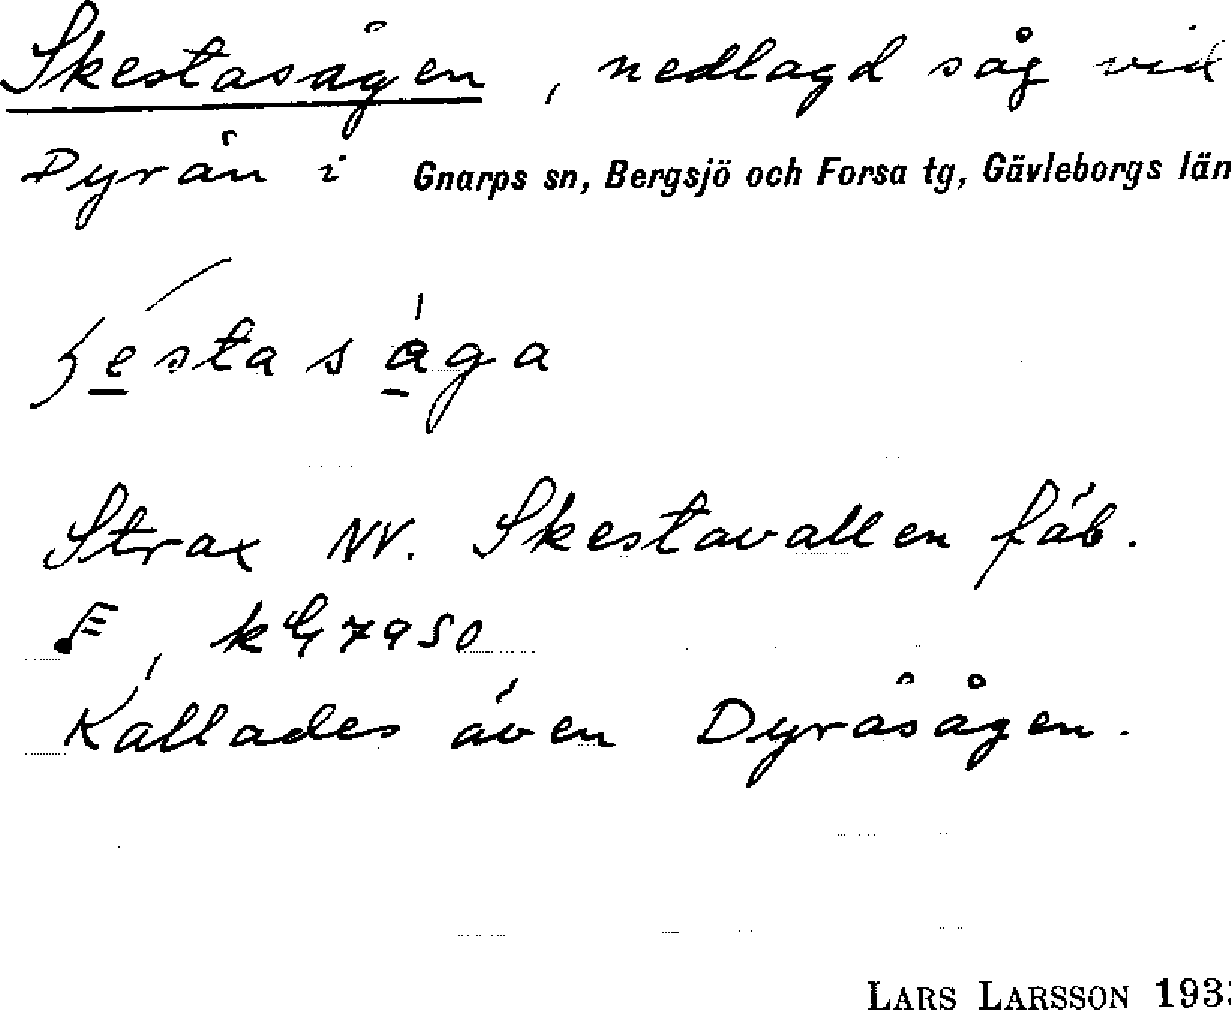 Skestasågen, nedlagd såg vid
Dyrån i Gnarps sn, Bergsjö och Forsa tg, Gävleborgs län
Strax NV. Skestavallen fäb.
Kallades även Dyråsågen.
LARS LARSSON 193